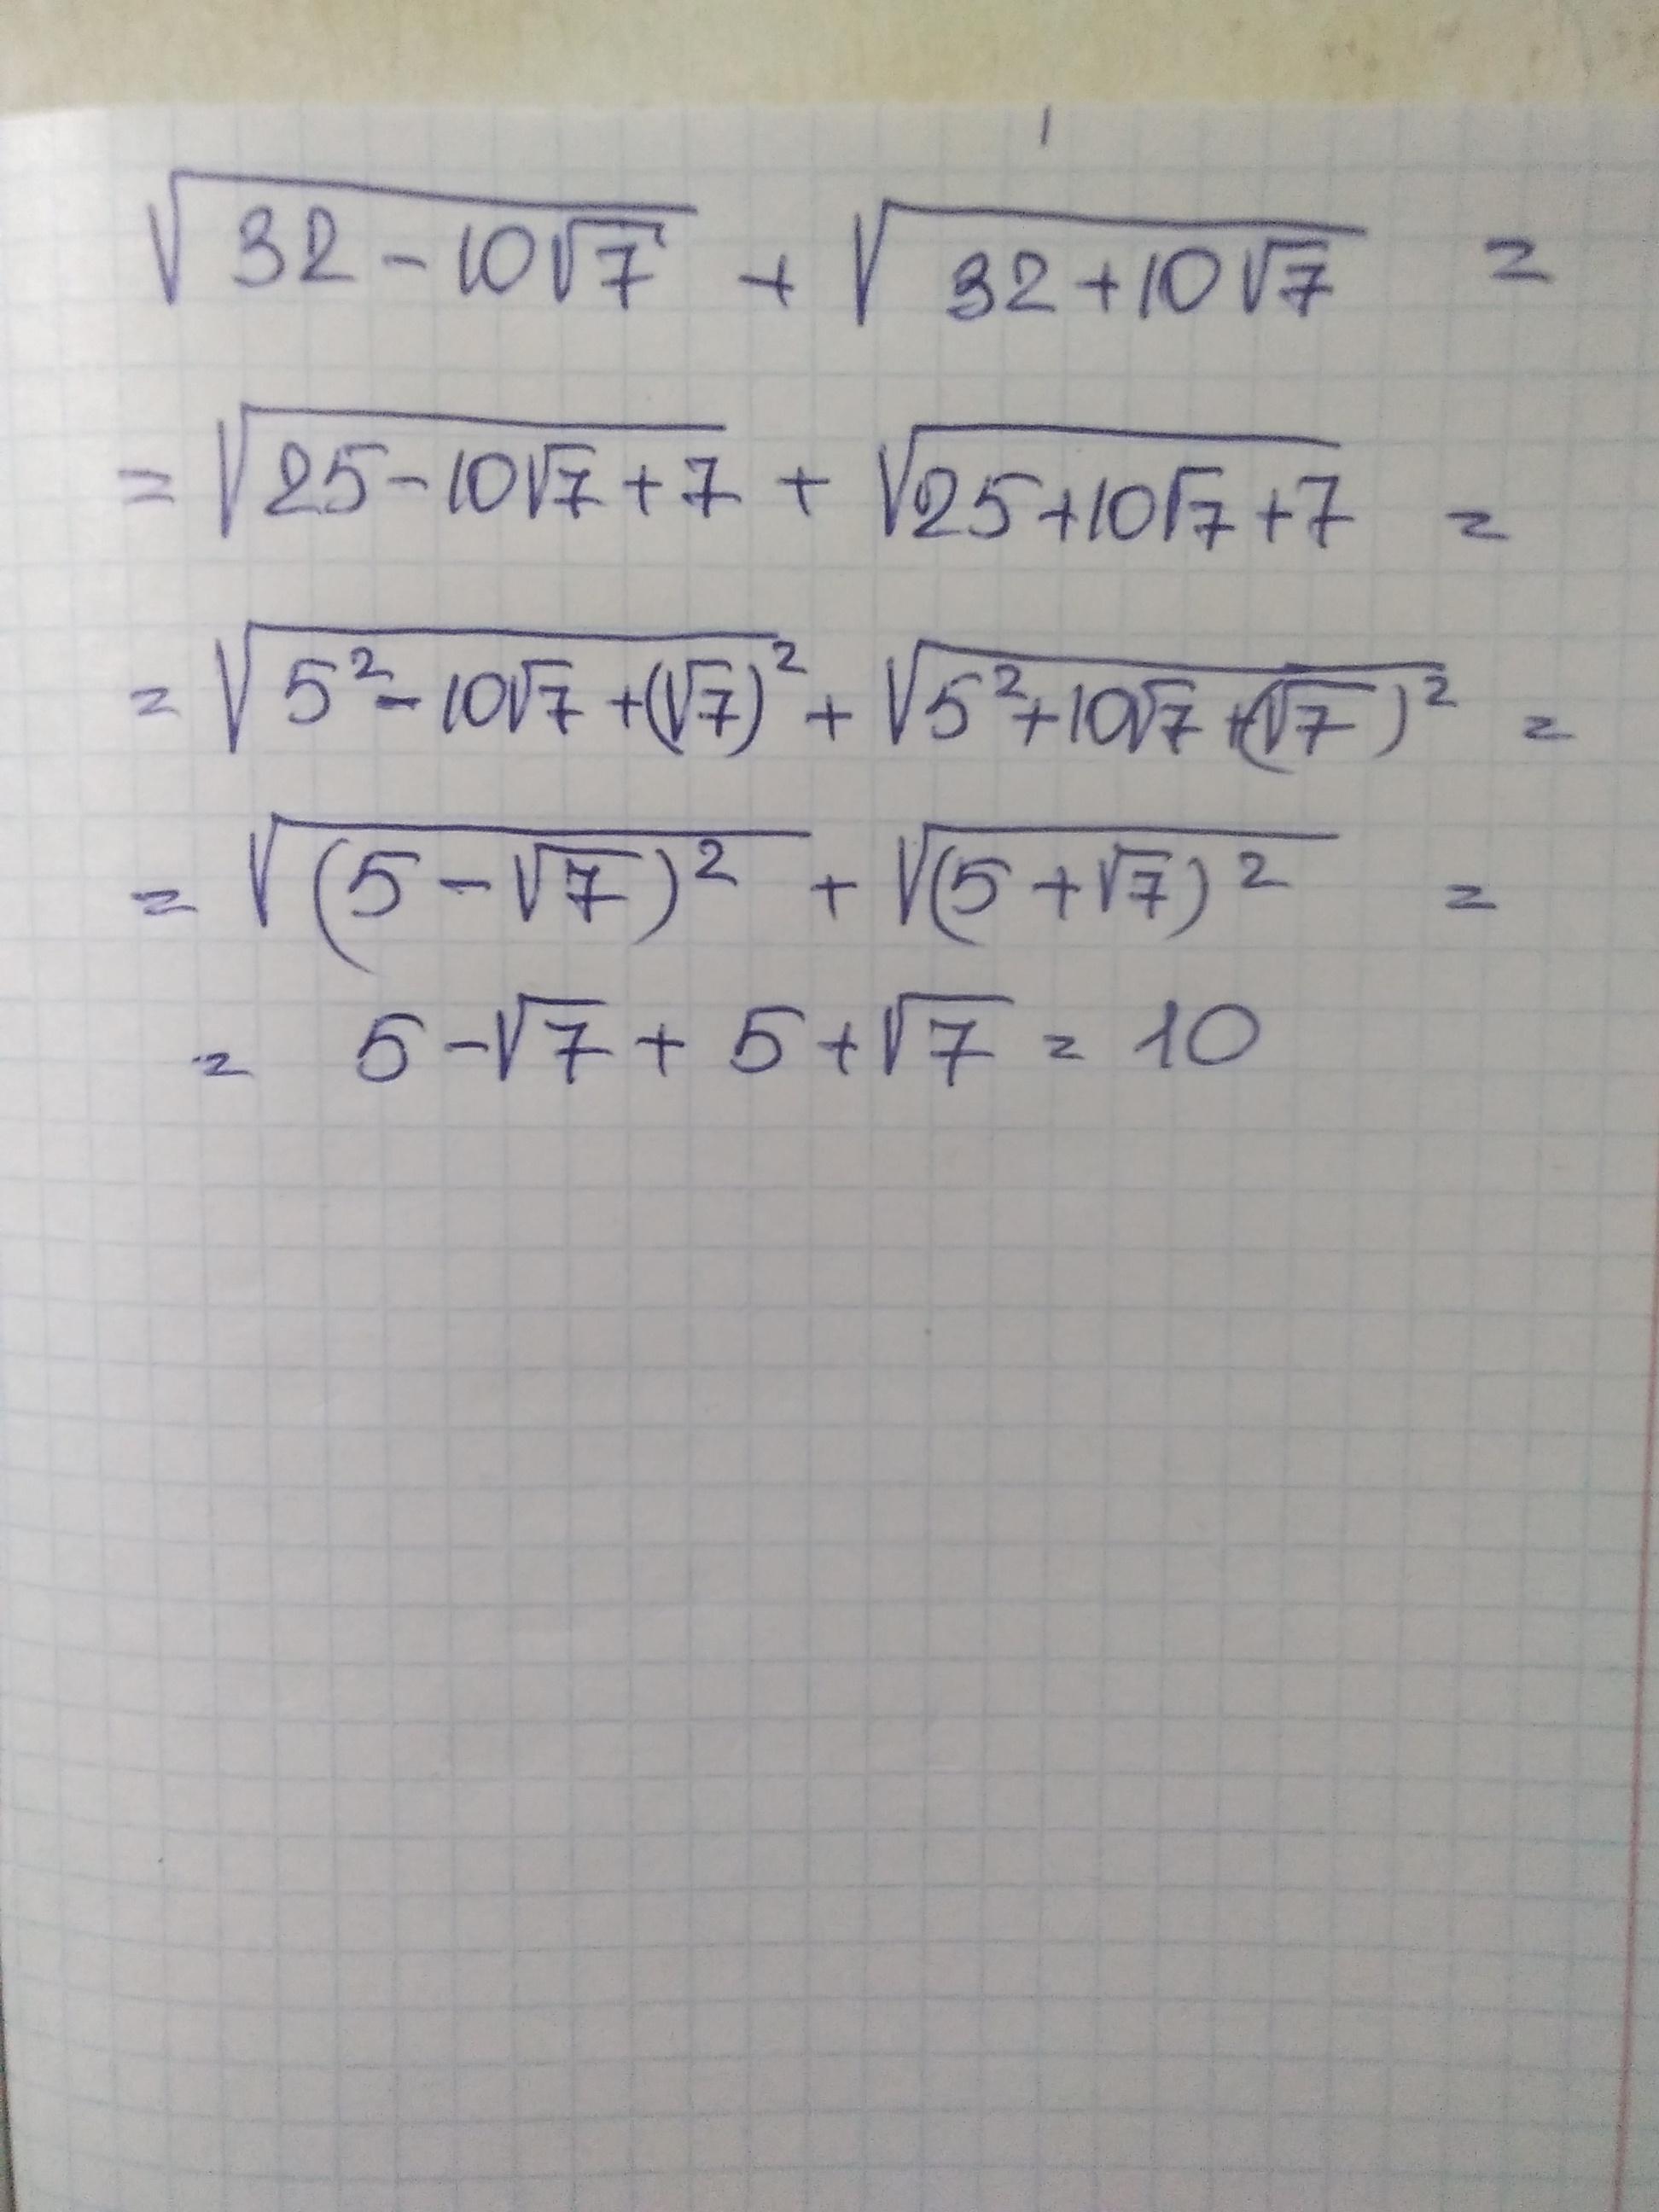 √(32 - 10√7) + √(32 + 10√7) =
= √(25 - 10√7 + 7) + √(25 + 10√7 + 7) =
= √(5² - 10√7 + (√7)²) + √(5² + 10√7 + (√7)²) =
= √((5 - √7)²) + √((5 + √7)²) =
= 5 - √7 + 5 + √7 = 10